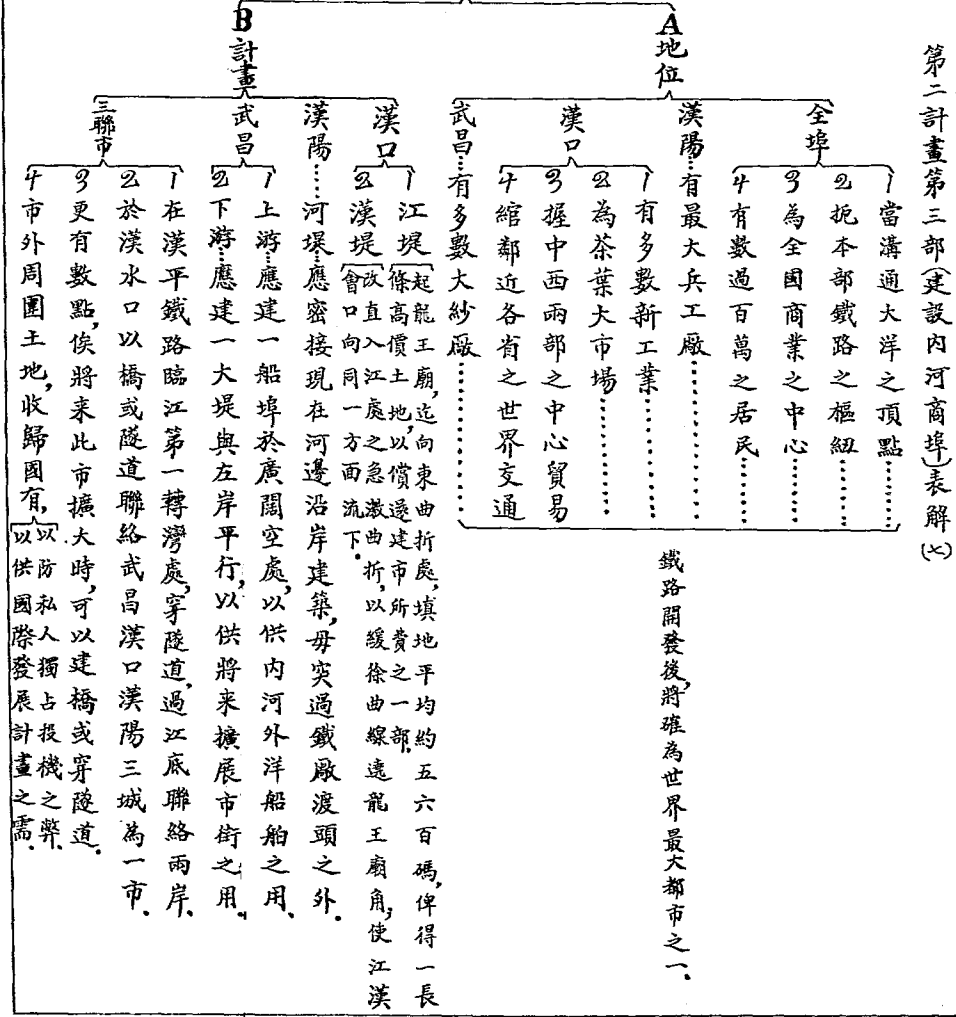 第二計畫第三部(建設內河商埠)表解(七)
A地位
全埠
1當溝通大洋之頂點
2扼本部鐵路之樞紐
3為全國商業之中心
4有數過百萬之居民
漢陽…有最大兵工廠
漢口
1有多數新工業
2為茶葉大市場
3握中西兩部之中心貿易
4綰鄰近各省之世界交通
武昌…有多數大紗廠
鐵路開發後,將確為世界最大都市之一.
B計畫
漢口
1江堤
起龍王廟,迄向東曲折處,填地平均約五六百碼,俾得一長
條高價土地,以償還建市所費之一部.
2漢堤
改直入江處之急激曲折,以緩徐曲線遶龍王廟角,使江漢
會口向同一方面流下.
漢陽……河堤…應密接現在河邊沿岸建築,毋突過鐵廠渡頭之外.
武昌
1上游…應建一船埠於廣闊空處,以供內河外洋船舶之用.
2下游…應建一大堤與左岸平行,以供將来擴展市街之用.
三聯市
1在漢平鐵路臨江第一轉灣處,穿隧道,過江底聯絡兩岸.
2於漢水口以橋或隧道聯絡武昌漢口漢陽三城為一市.
3更有數點,俟將来此市擴大時,可以建橋或穿隧道.
4市外周圍土地,收歸國有,
以防私人獨占投機之弊.
以供國際發展計畫之需.